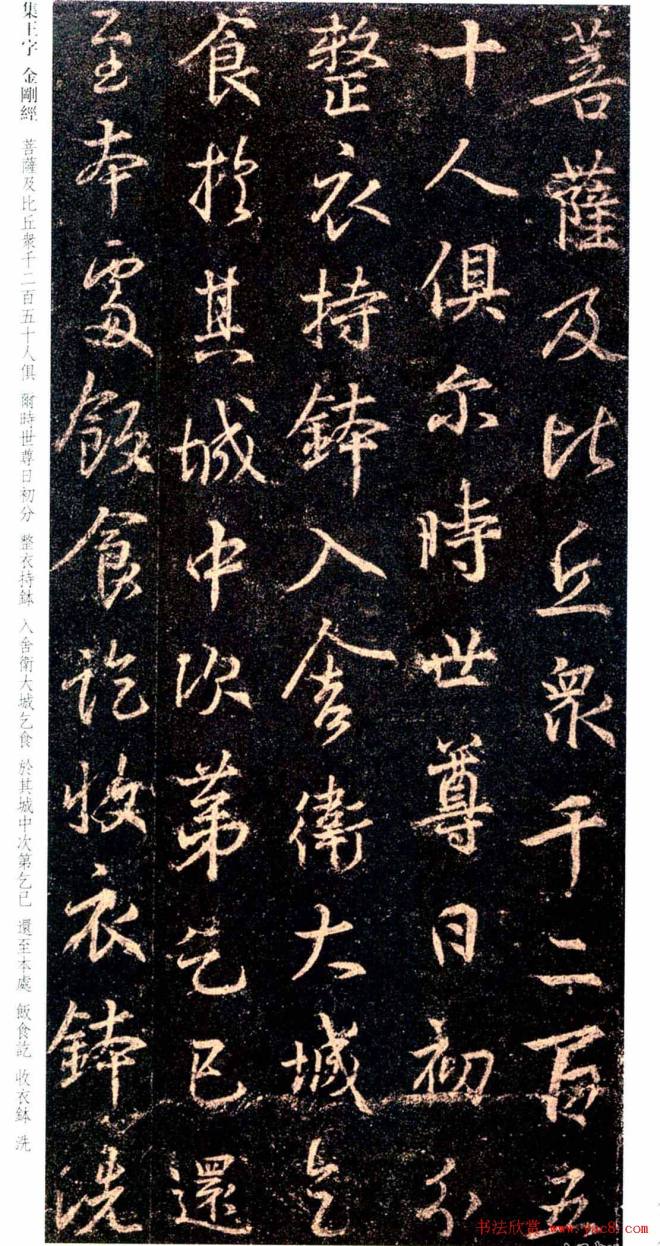 菩薩及比丘衆千二百五
十人俱尔時世尊日初分
整衣持鉢入舍衛大城乞
食於其城中次第乞已還
至本處飯食訖收衣鉢洗
集王字 金剛經 菩薩及比丘衆千二百五十人俱 爾時世尊日初分 整衣持鉢 入舍衛大城乞食 於其城中次第乞已 還至本處 飯食訖 收衣鉢 洗
书法欣赏 www.yac8.com